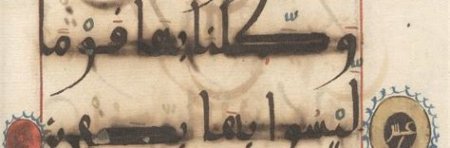 وَكَّلْنَا بِهَا قَوْمًا
لَّيْسُوا بِهَا بِكَفِرِينَ
عشر